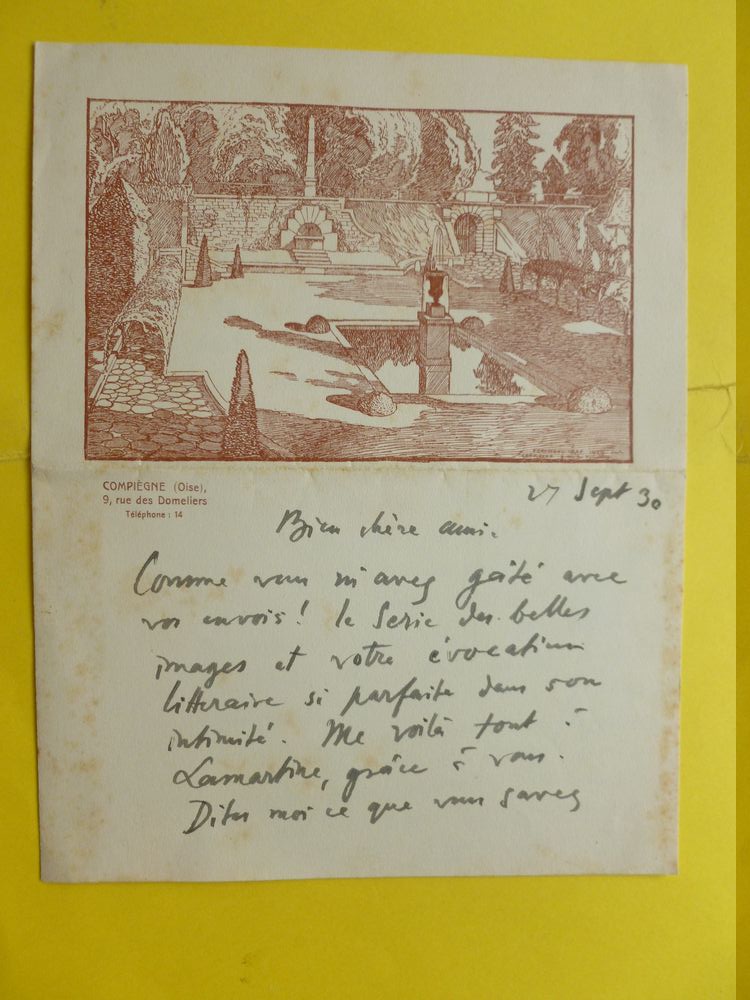 COMPIÈGNE (Oise),
9, rue des Domeliers
Téléphone : 14
27 Sept 30
Bien chère amie.
Comme vous m'avez gâté avec
vos envois ! la Serie des belles
images et votre évocation
litteraire si parfaite dans son
intimité. Me voilà tout à
Lamartine, grâce à vous.
Dites moi ce que vous savez